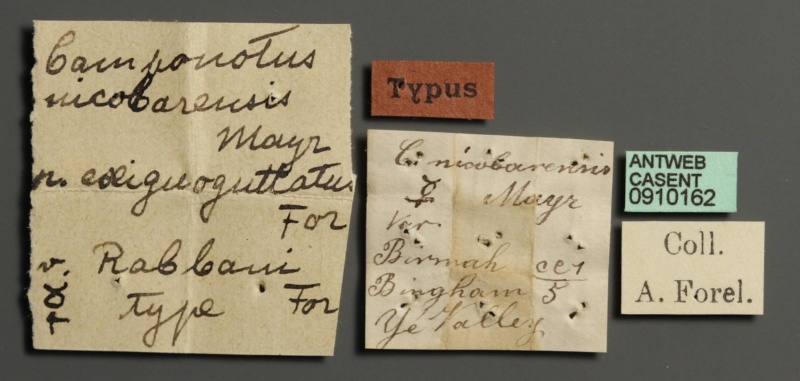 Camponotus
nicobarensis
Mayr
r. exiguoguttatus
For
v. Rabbani
type For
Typus
C. nicobarensis
☿ Mayr
Var.
Birmah
Bingham 5
Ye Valley
ANTWEB
CASENT
0910162
Coll.
A. Forel.